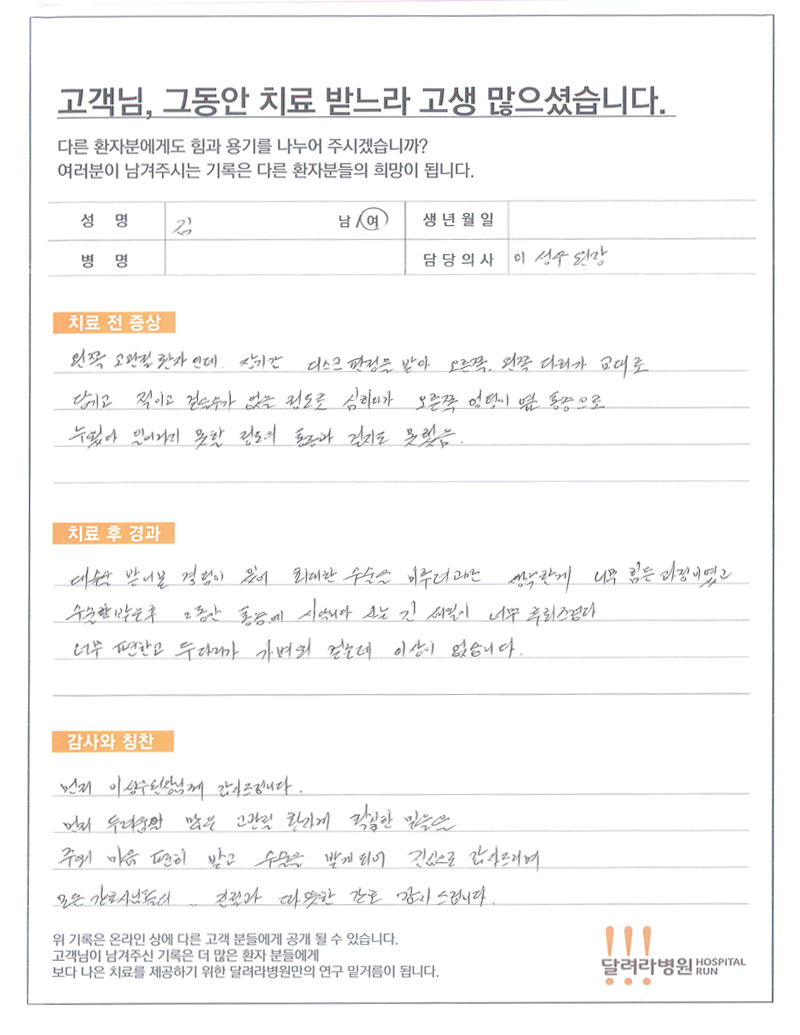 고객님, 그동안 치료 받느라 고생 많으셨습니다.
다른 환자분에게도 힘과 용기를 나누어 주시겠습니까?
여러분이 남겨주시는 기록은 다른 환자분들의 희망이 됩니다.
성 명 김 남/여 생년월일
병 명 담당의사 이 성우 원장
치료 전 증상
왼쪽 고관절 환자인데. 장기간 디스크 판정을 받아 오른쪽, 왼쪽 다리가 교대로
당기고 걸을수가 없을 정도로 심하다가 오른쪽 엉덩이 옆 통증으로
누웠다 일어나지 못할 정도의 통증과 걷지도 못했음.
치료 후 경과
대수술 받아본 경험이 있어 최대한 수술을 미루려고만 생각한게 너무 힘든 과정이였고
수술을 받은후 그동안 통증에 시달리다 오는 긴 세월이 너무 후회스럽다
너무 편안하고 두다리가 가벼워 걷는데 이상이 없습니다.
감사와 칭찬
먼저 원장님께 감사드립니다.
먼저 많은 고관절 환자에게 확실한 믿음을
주어 마음 편히 받고 수술을 받게되어 진심으로 감사드리며
모든 간호사님들의 친절과 따뜻한 간호 감사드립니다.
위 기록은 온라인 상에 다른 고객 분들에게 공개 될 수 있습니다.
고객님이 남겨주신 기록은 더 많은 환자 분들에게
보다 나은 치료를 제공하기 위한 달려라병원만의 연구 밑거름이 됩니다.
달려라병원 HOSPITAL RUN